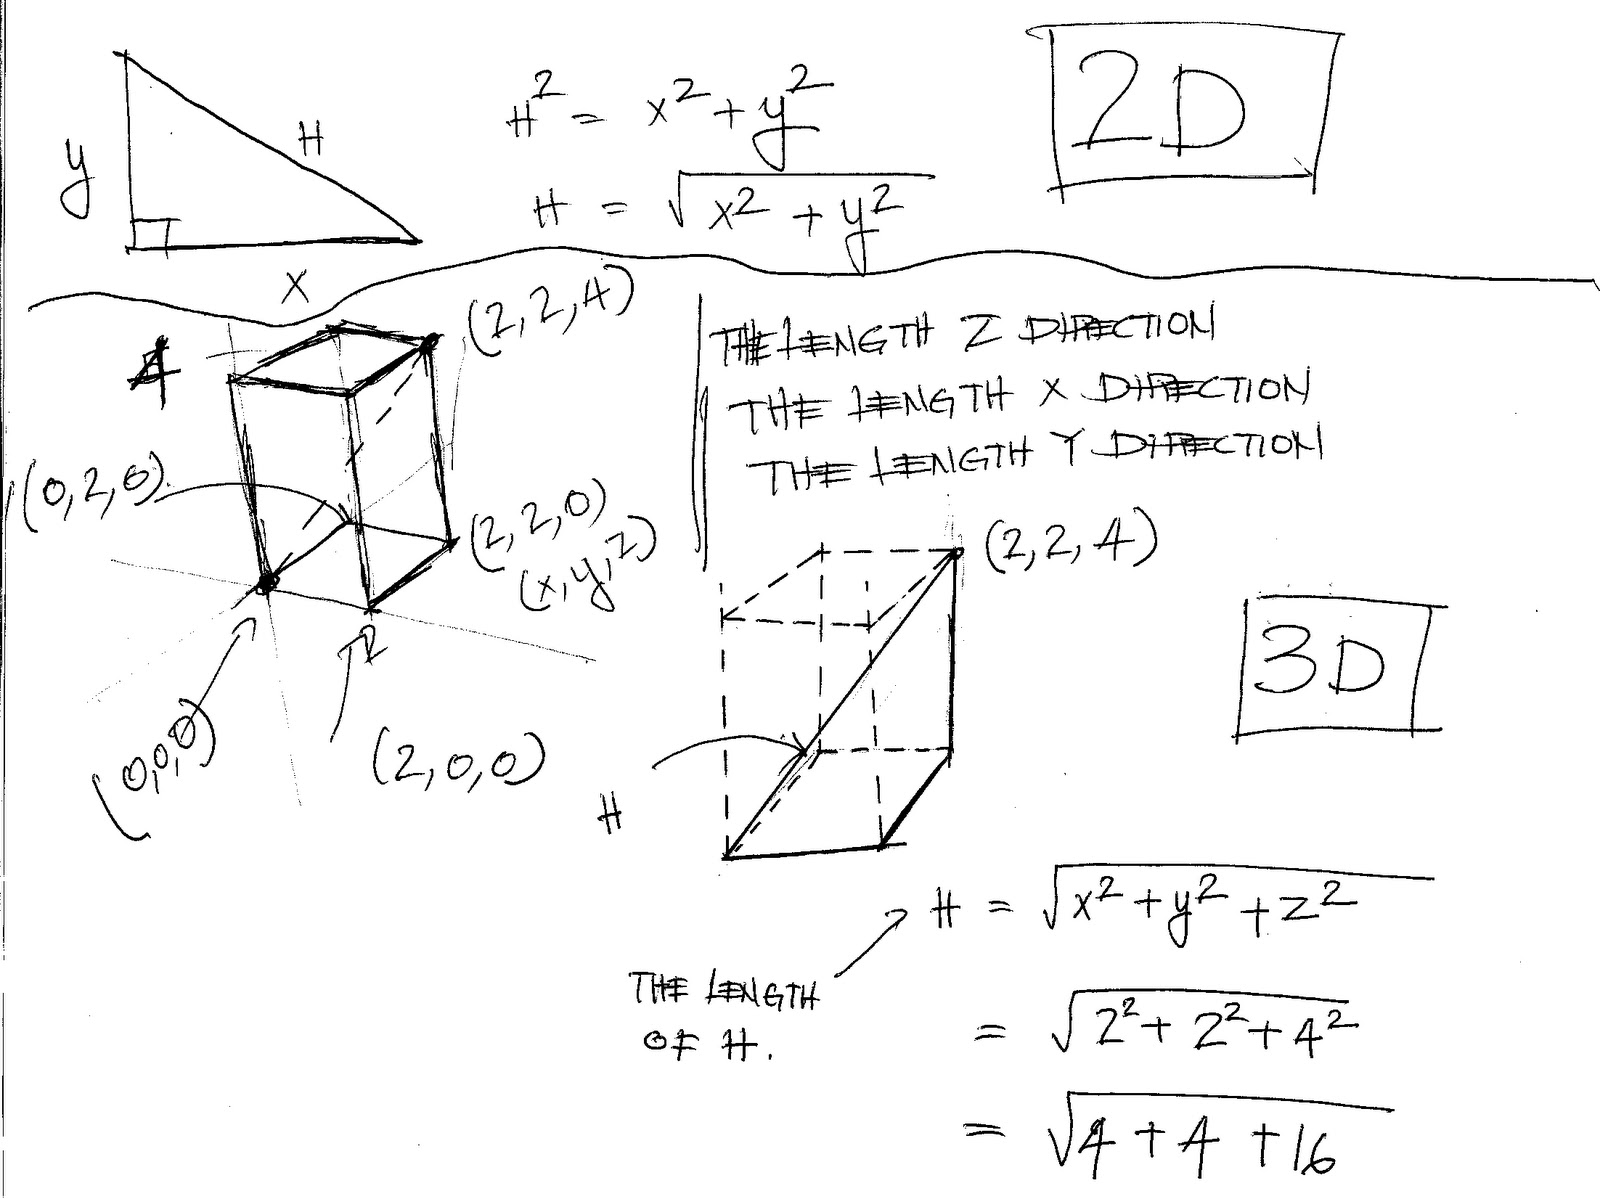 2D
H² = x² + y²
H = √x² + y²
y
H
x
(2,2,4)
4
(0,2,0)
(2,2,0)
(x,y,z)
2
(0,0,0)
(2,0,0)
THE LENGTH Z DIRECTION
THE LENGTH X DIRECTION
THE LENGTH Y DIRECTION
(2,2,4)
3D
H
H = √x² + y² + z²
THE LENGTH
OF H.
= √2² + 2² + 4²
= √4 + 4 + 16